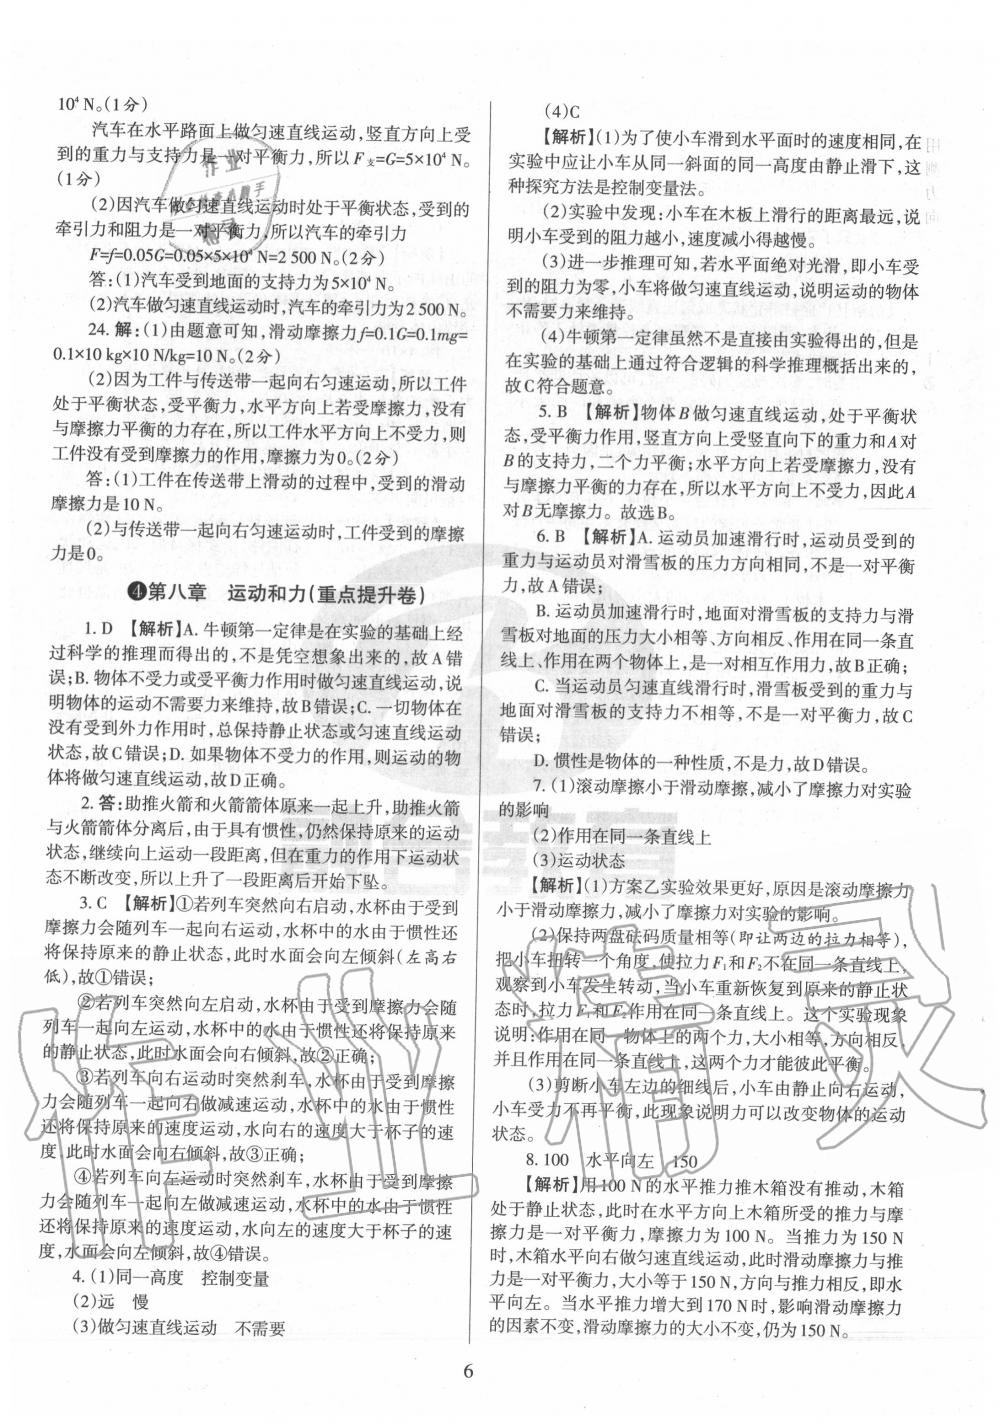 10⁴ N。(1分)
汽车在水平路面上做匀速直线运动,竖直方向上受
到的重力与支持力是一对平衡力,所以F支=G=5×10⁴ N。
(1分)
(2)因汽车做匀速直线运动时处于平衡状态,受到的
牵引力和阻力是一对平衡力,所以汽车的牵引力
F=f=0.05G=0.05×5×10⁴ N=2 500 N。(2分)
答:(1)汽车受到地面的支持力为5×10⁴ N。
(2)汽车做匀速直线运动时,汽车的牵引力为2 500 N。
24. 解:(1)由题意可知,滑动摩擦力f=0.1G=0.1mg=
0.1×10 kg×10 N/kg=10 N。(2分)
(2)因为工件与传送带一起向右匀速运动,所以工件
处于平衡状态,受平衡力,水平方向上若受摩擦力,没有
与摩擦力平衡的力存在,所以工件水平方向上不受力,则
工件没有受到摩擦力的作用,摩擦力为0。(2分)
答:(1)工件在传送带上滑动的过程中,受到的滑动
摩擦力是10 N。
(2)与传送带一起向右匀速运动时,工件受到的摩擦
力是0。
❹第八章 运动和力(重点提升卷)
1. D 【解析】A. 牛顿第一定律是在实验的基础上经
过科学的推理而得出的,不是凭空想象出来的,故A错
误;B. 物体不受力或受平衡力作用时做匀速直线运动,说
明物体的运动不需要力来维持,故B错误;C. 一切物体在
没有受到外力作用时,总保持静止状态或匀速直线运动
状态,故C错误;D. 如果物体不受力的作用,运动的物
体将做匀速直线运动,故D正确。
2. 答:助推火箭和火箭箭体原来一起上升,助推火箭
与火箭箭体分离后,由于具有惯性,仍然保持原来的运动
状态,继续向上运动一段距离,但在重力的作用下运动状
态不断改变,所以上升了一段距离后开始下坠。
3. C 【解析】①若列车突然向右启动,水杯由于受到
摩擦力会随列车一起向右运动,水杯中的水由于惯性还
将保持原来的静止状态,此时水面会向左倾斜(左高右
低),故①错误;
②若列车突然向左启动,水杯由于受到摩擦力会随
列车一起向左运动,水杯中的水由于惯性还将保持原来
的静止状态,此时水面会向右倾斜,故②正确;
③若列车向右运动时突然刹车,水杯由于受到摩擦
力会随列车一起向右做减速运动,水杯中的水由于惯性
还将保持原来的速度运动,水向右的速度大于杯子的速
度,此时水面会向右倾斜,故③正确;
④若列车向左运动时突然刹车,水杯由于受到摩擦
力会随列车一起向左做减速运动,水杯中的水由于惯性
还将保持原来的速度运动,水向左的速度大于杯子的速
度,水面会向左倾斜,故④错误。
4. (1)同一高度 控制变量
(2)远 慢
(3)做匀速直线运动 不需要
(4)C
【解析】(1)为了使小车滑到水平面时的速度相同,在
实验中应让小车从同一斜面的同一高度由静止滑下,这
种探究方法是控制变量法。
(2)实验中发现:小车在木板上滑行的距离最远,说
明小车受到的阻力越小,速度减小得越慢。
(3)进一步推理可知,若水平面绝对光滑,即小车受
到的阻力为零,小车将做匀速直线运动,说明运动的物体
不需要力来维持。
(4)牛顿第一定律虽然不是直接由实验得出的,但是
在实验的基础上通过符合逻辑的科学推理概括出来的,
故C符合题意。
5. B 【解析】物体B做匀速直线运动,处于平衡状
态,受平衡力作用,竖直方向上受竖直向下的重力和A对
B的支持力,二个力平衡;水平方向上若受摩擦力,没有
与摩擦力平衡的力存在,所以水平方向上不受力,因此A
对B无摩擦力。故选B。
6. B 【解析】A. 运动员加速滑行时,运动员受到的
重力与运动员对滑雪板的压力方向相同,不是一对平衡
力,故A错误;
B. 运动员加速滑行时,地面对滑雪板的支持力与滑
雪板对地面的压力大小相等、方向相反、作用在同一条直
线上、作用在两个物体上,是一对相互作用力,故B正确;
C. 当运动员匀速直线滑行时,滑雪板受到的重力与
地面对滑雪板的支持力不相等,不是一对平衡力,故C
错误;
D. 惯性是物体的一种性质,不是力,故D错误。
7. (1)滚动摩擦小于滑动摩擦,减小了摩擦力对实验
的影响
(2)作用在同一条直线上
(3)运动状态
【解析】(1)方案乙实验效果更好,原因是滚动摩擦力
小于滑动摩擦力,减小了摩擦力对实验的影响。
(2)保持两盘砝码质量相等(即让两边的拉力相等),
把小车扭转一个角度,使拉力F₁和F₂不在同一条直线上,
观察到小车发生转动,当小车重新恢复到原来的静止状
态时,拉力F₁和F₂作用在同一条直线上。这个实验现象
说明:作用在同一物体上的两个力,大小相等、方向相反、
并且作用在同一条直线上,这两个力才能彼此平衡。
(3)剪断小车左边的细线后,小车由静止向右运动,
小车受力不再平衡,此现象说明力可以改变物体的运动
状态。
8. 100 水平向左 150
【解析】用100 N的水平推力推木箱没有推动,木箱
处于静止状态,此时在水平方向上木箱所受的推力与摩
擦力是一对平衡力,摩擦力为100 N。当推力为150 N
时,木箱水平向右做匀速直线运动,此时滑动摩擦力与推
力是一对平衡力,大小等于150 N,方向与推力相反,即水
平向左。当水平推力增大到170 N时,影响滑动摩擦力
的因素不变,滑动摩擦力的大小不变,仍为150 N。
6
作业精灵
融合教育